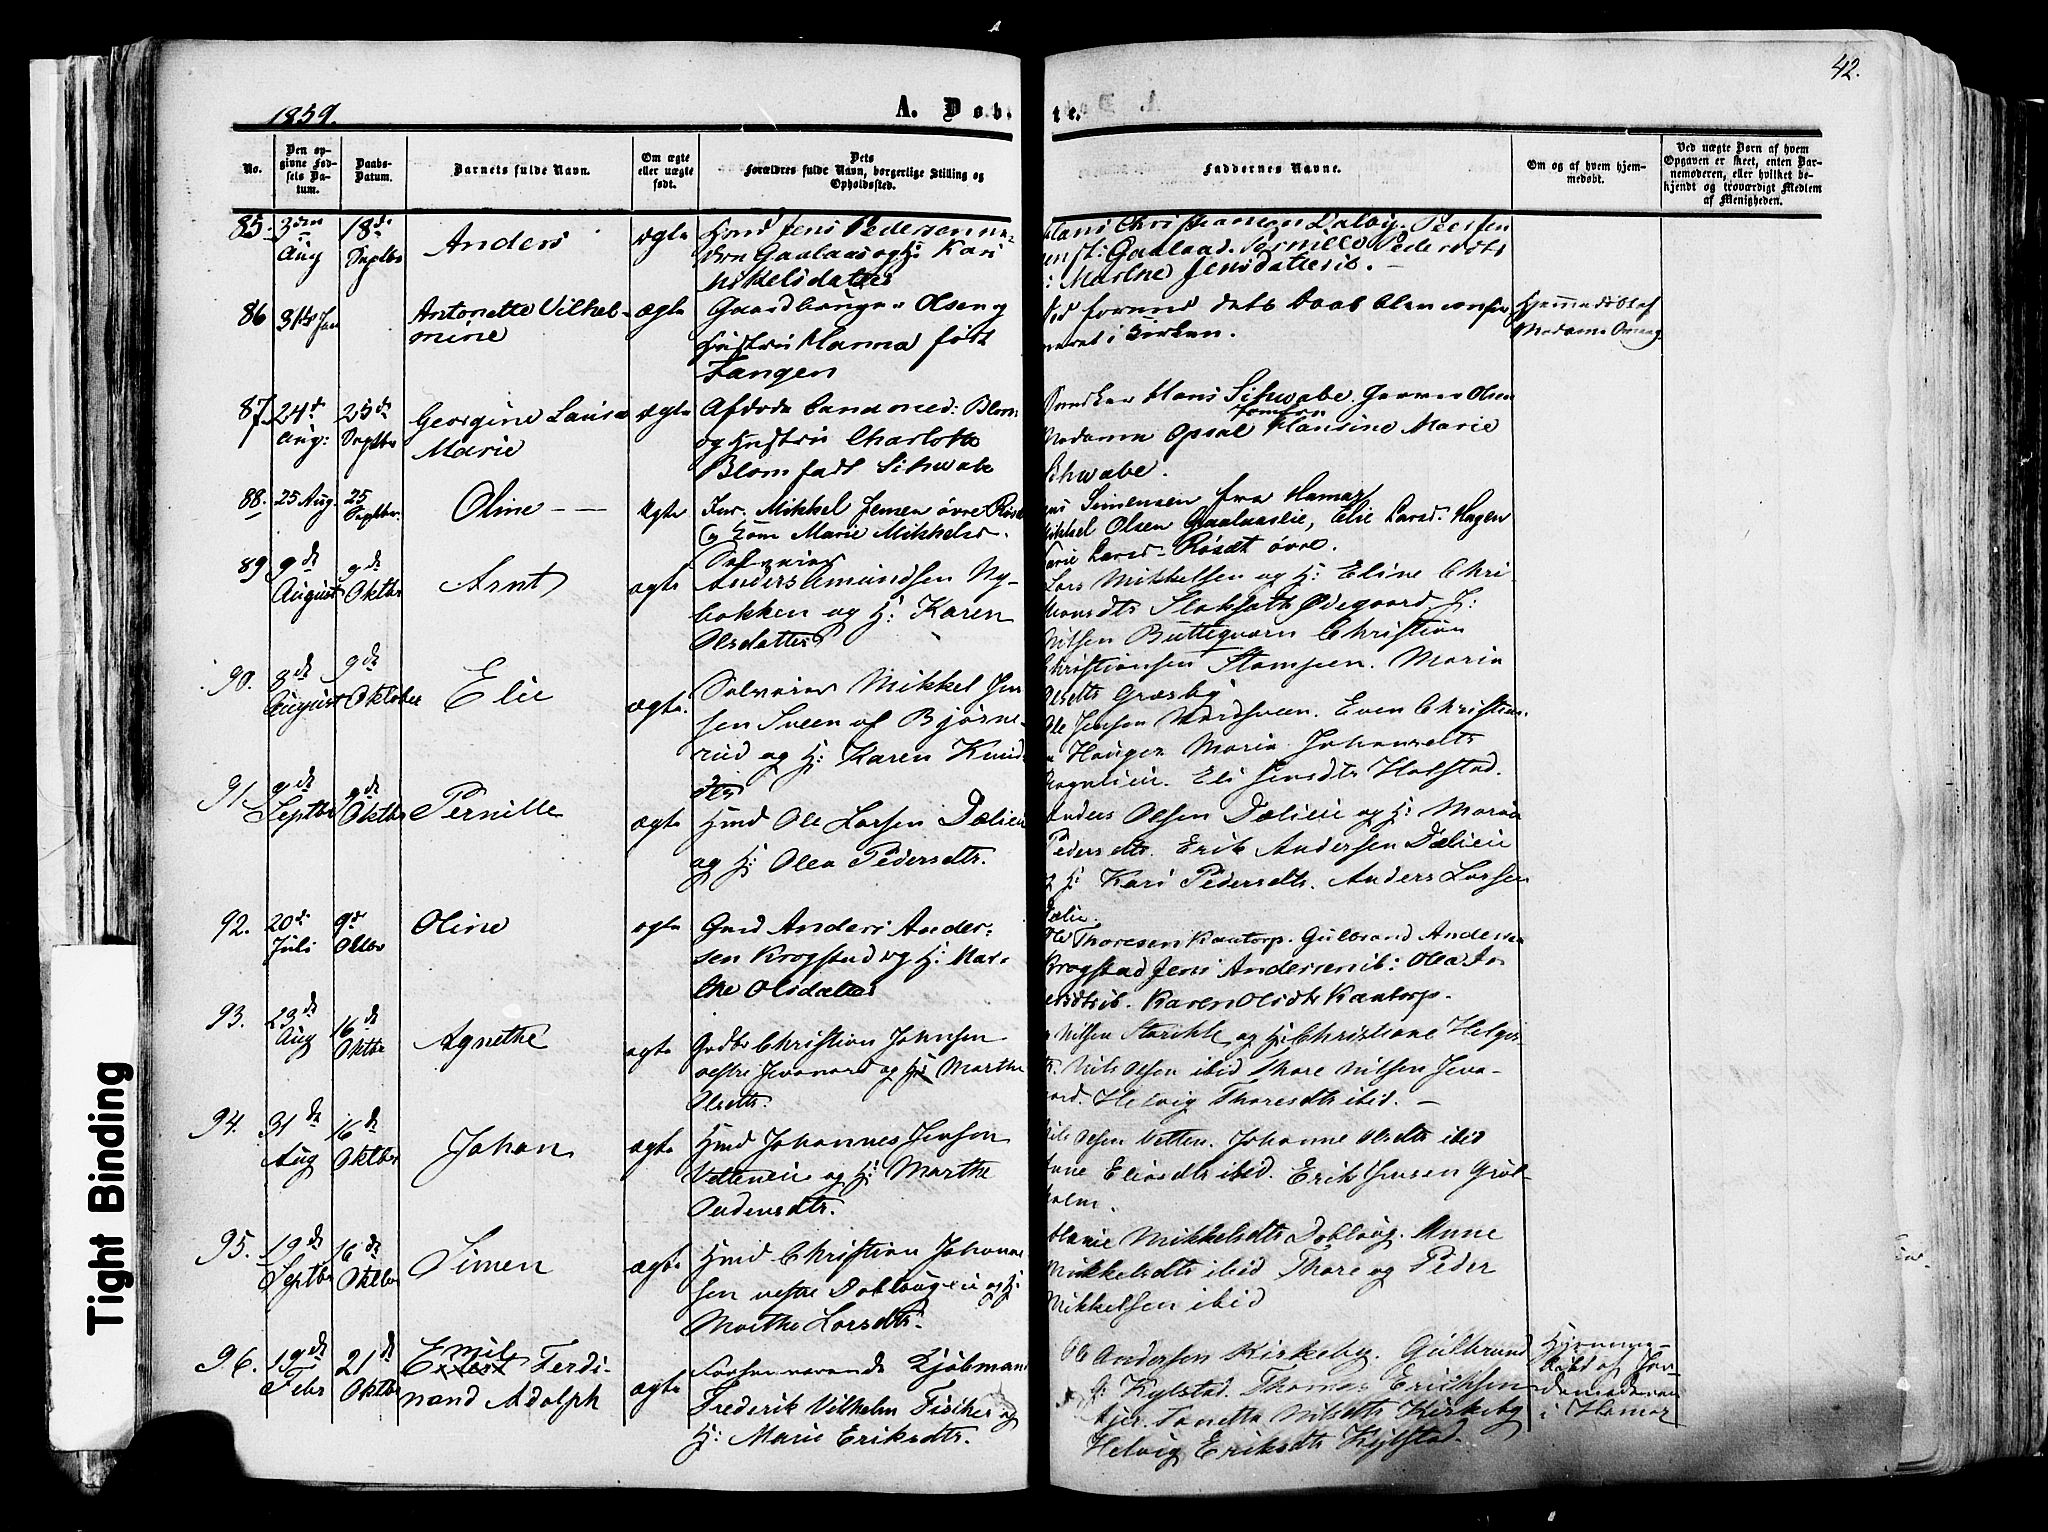 42.
1859.
A. Døb
te.
No.
Den op-
givne Fød-
sels Da-
tum.
Daabs-
Datum.
Barnets fulde Navn.
Om ægte
eller uægte
født.
Dets
Forældres fulde Navn, borgerlige Stilling og
Opholdssted.
Faddernes Navne.
Om og af hvem hjem-
medøbt.
Ved uægte Børn af hvem
Opgaven er skeet, enten Bar-
nemoderen, eller hvilket be-
kjendt og troværdigt Medlem
af Menigheden.
85. 3die Aug 18de Septbr Anders ægte Hmd Jens Pedersen ne-
dre Gaalaas og H: Kari
Mikelsdatter
Christiansen Dalby. Peer
Gaalaas. Pedersdtr
Marthe Jensdatter ib. —
86 31te Jan Antonette Vilhel-
mine ægte Gaardbruger Olsen og
Hustru Hanna født
Fangen
forund dets Daab blev confir
meret i Kirken.
Hjemmedøbt af
Madame
87. 24de Aug: 25de Septbr Georgine Lauisa
Marie ægte Afdøde Cand med: Blom
og Hustru Charlotte
Blom født Schwabe
Hans Schwabe. Olsen
Madame Opsal Jomfru Hansine Marie
Schwabe.
88. 25 Aug. 25 Septbr. Oline - — ægte Inr. Mikkel Jensen øvre
og Kone Marie Mikkelsd.
Simensen fra Hamar
Mikkel Olsen Gaalaaseie, Elie Larsd. Hagen
Marie Larsd- Røset øvre.
89 9de August 9de Oktbr Arnt ægte Selveier
Anders Amundsen Ny-
bakken og H: Karen
Olsdatter
Lars Mikkelsen og H: Eline Chri-
Ødegaard H:
Nilsen Butteqvern Christian
Christiansen Stamseen. Maria
Olsdtr Græsby
90. 3de August 9de Oktober Elie ægte. Selveier Mikkel Jen
sen Sveen af Bjørne-
rud og H: Karen Knud
dtr
Ole Jensen Nordsveen. Even Christian-
Hauger Maria Johansdtr
Eli Jensdtr Holstad.
91. 9de Septbr 9de Oktbr Pernille ægte Hmd Ole Larsen Dælieie
og H: Olea Pedersdtr.
Anders Olsen Dælieie og H: Maria
Pedersdtr. Erik Andersen Dælieie
og H: Kari Pedersdtr. Anders Larsen
Dælie.
92. 20de Juli 9de Oktbr Oline ægte Gmd Anders Ander-
sen Krogstad og H: Mar-
the Olsdatter
Ole Thoresen Kaatorp. Gulbrand Andersen
Krogstad Jens Andersen ib: Olea
ib. Karen Olsdtr Kaatorp.
93. 23de Aug 16de Oktbr Agnethe ægte Gmd Christian Johnsen
vestre Jevanord og H: Marthe
Olsdtr.
Nilsen og H: Christiane Helges
Nils Olsen ibid Thore Nilsen Jeva-
nord. Helvig Thoresdtr ibid. —
94. 31de Aug 16de Oktbr Johan ægte Hmd Johannes Jenson
Vetteneie og H: Marthe
Andersdtr.
Nils Olsen Vetten. Johanne Olsdtr ibid
Anne Eliasdtr ibid. Erik Jensen Grøt-
holm.
95. 19de Septbr 16de Oktbr Simen ægte Hmd Christian Johanne
sen vestre Dobloug-eie og H:
Marthe Larsdtr.
Marie Mikkelsdtr Dobloug. Anne
Mikkelsdtr ibid Thore og Peder
Mikkelsen ibid
96. 19de Febr 21de Oktbr Emil Ferdi-
nand Adolph ægte Forhenværende Kjøbmand
Frederik Vilhelm Fischer og
H: Marie Eriksdtr.
Ole Andersen Kirkeby. Gulbrand
Kylstad. Thomas Eriksen
Janetta Nilsdtr Kirkeby
Helvig Eriksdtr Kylstad.
Hjemme-
døbt af Jor-
demoderen
i Hamar
Tight Binding